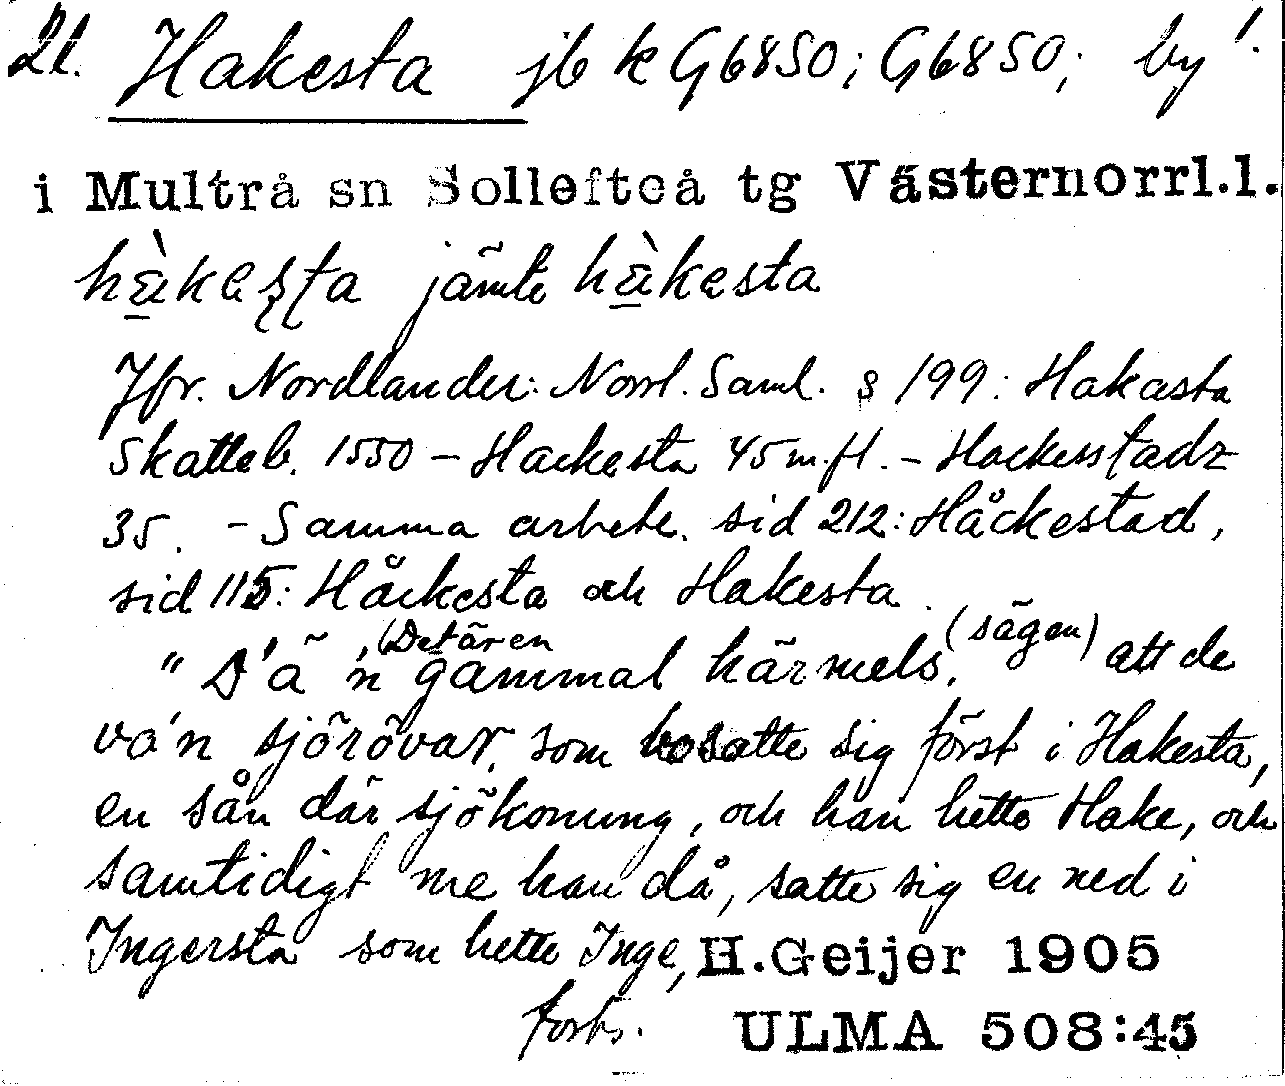 2l. Hakesta jb k G6850; G6850; by 1.
i Multrå sn Sollefteå tg Västernorrl.l.
hàkesta jämte hàkesta
Jfr. Nordlander: Norrl. Saml. s 199: Hakasta
Skatteb. 1550 – Hackesta 45 m.fl. – Hackesstadz
35. – Samma arbete. sid 212: Håckestad,
sid 115: Håckesta och Hakesta.
(Det är en (sägen)
"D'ä 'n gammal härmels, att de
va'n sjörövar, som bosatte sig först i Hakesta,
en sån där sjökonung, och han hette Hake, och
samtidigt me han då, satte sig en ned i
Ingersta som hette Inge, H.Geijer 1905
forts. ULMA 508:45